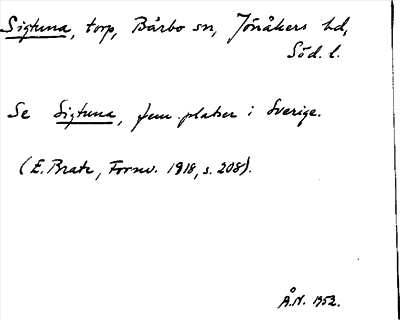 Sigtuna, torp, Bårbo sn, Jönåkers hd,
Söd. l.
Se Sigtuna, fem platser i Sverige.
(E. Brate, Fornv. 1918, s. 208).
Å.N. 1952.